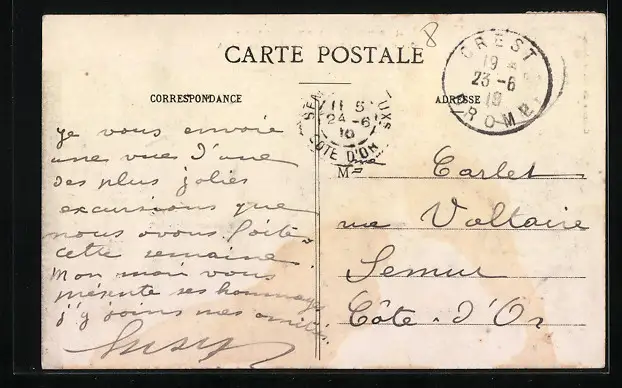 8
CARTE POSTALE
CREST
19 *
23-6
10
DROME
CORRESPONDANCE
ADRESSE
SEM UXS
11 5
24-6
10
COTE D'OR
Je vous envoie
une vue d'une
des plus jolies
excursions que
nous avons faite
cette semaine.
Mon mari vous
présente ses hommages
j'y joins mes amitiés
Susy
Mme Carlet
rue Voltaire
Semur
Côte-d'Or